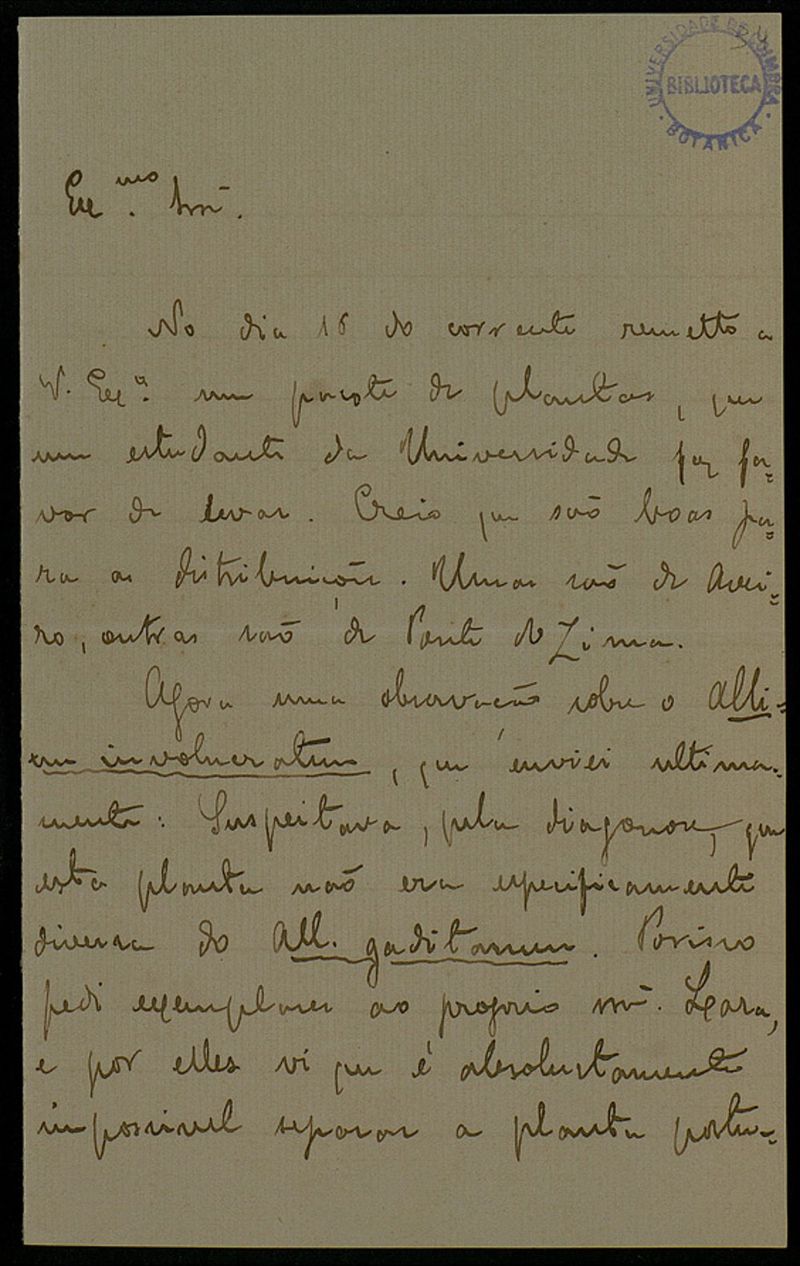 UNIVERSIDADE DE COIMBRA
BIBLIOTECA
BOTANICA
Ex.mo Snr.
No dia 16 do corrente remetto a
V. Ex.a um pacote de plantas, que
um estudante da Universidade faz fa-
vor de levar. Creio que são boas pa-
ra as distribuições. Umas são de Avei-
ro, outras são de Ponte do Lima.
Agora uma observação sobre o Alli-
um involucratum, que enviei ultima-
mente: Suspeitava, pela diagnose, que
esta planta não era especificamente
diversa do All. gaditanum. Porisso
pedi exemplares ao proprio snr.
e por elles vi que é absolutamente
impossivel separar a planta portu-